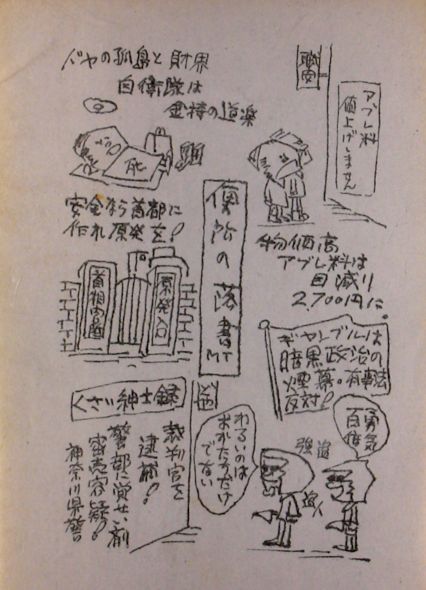 便所の落書
MT
職安
アブレ料
値上げしません
物価高
アブレ料は
目減り
2,700円に
ドヤの孤島と財界
自衛隊は
金持の道楽
死
安全なら首都に
作れ原発を!
首相官邸
原発入口
ギャンブルは
暗黒政治の
煙幕。有事法
反対!
勇気
百倍
強迫
わるいのは
おかただけ
でない
くさい紳士録
裁判官を
逮捕!
警部に覚せい剤
密売容疑!
神奈川県警